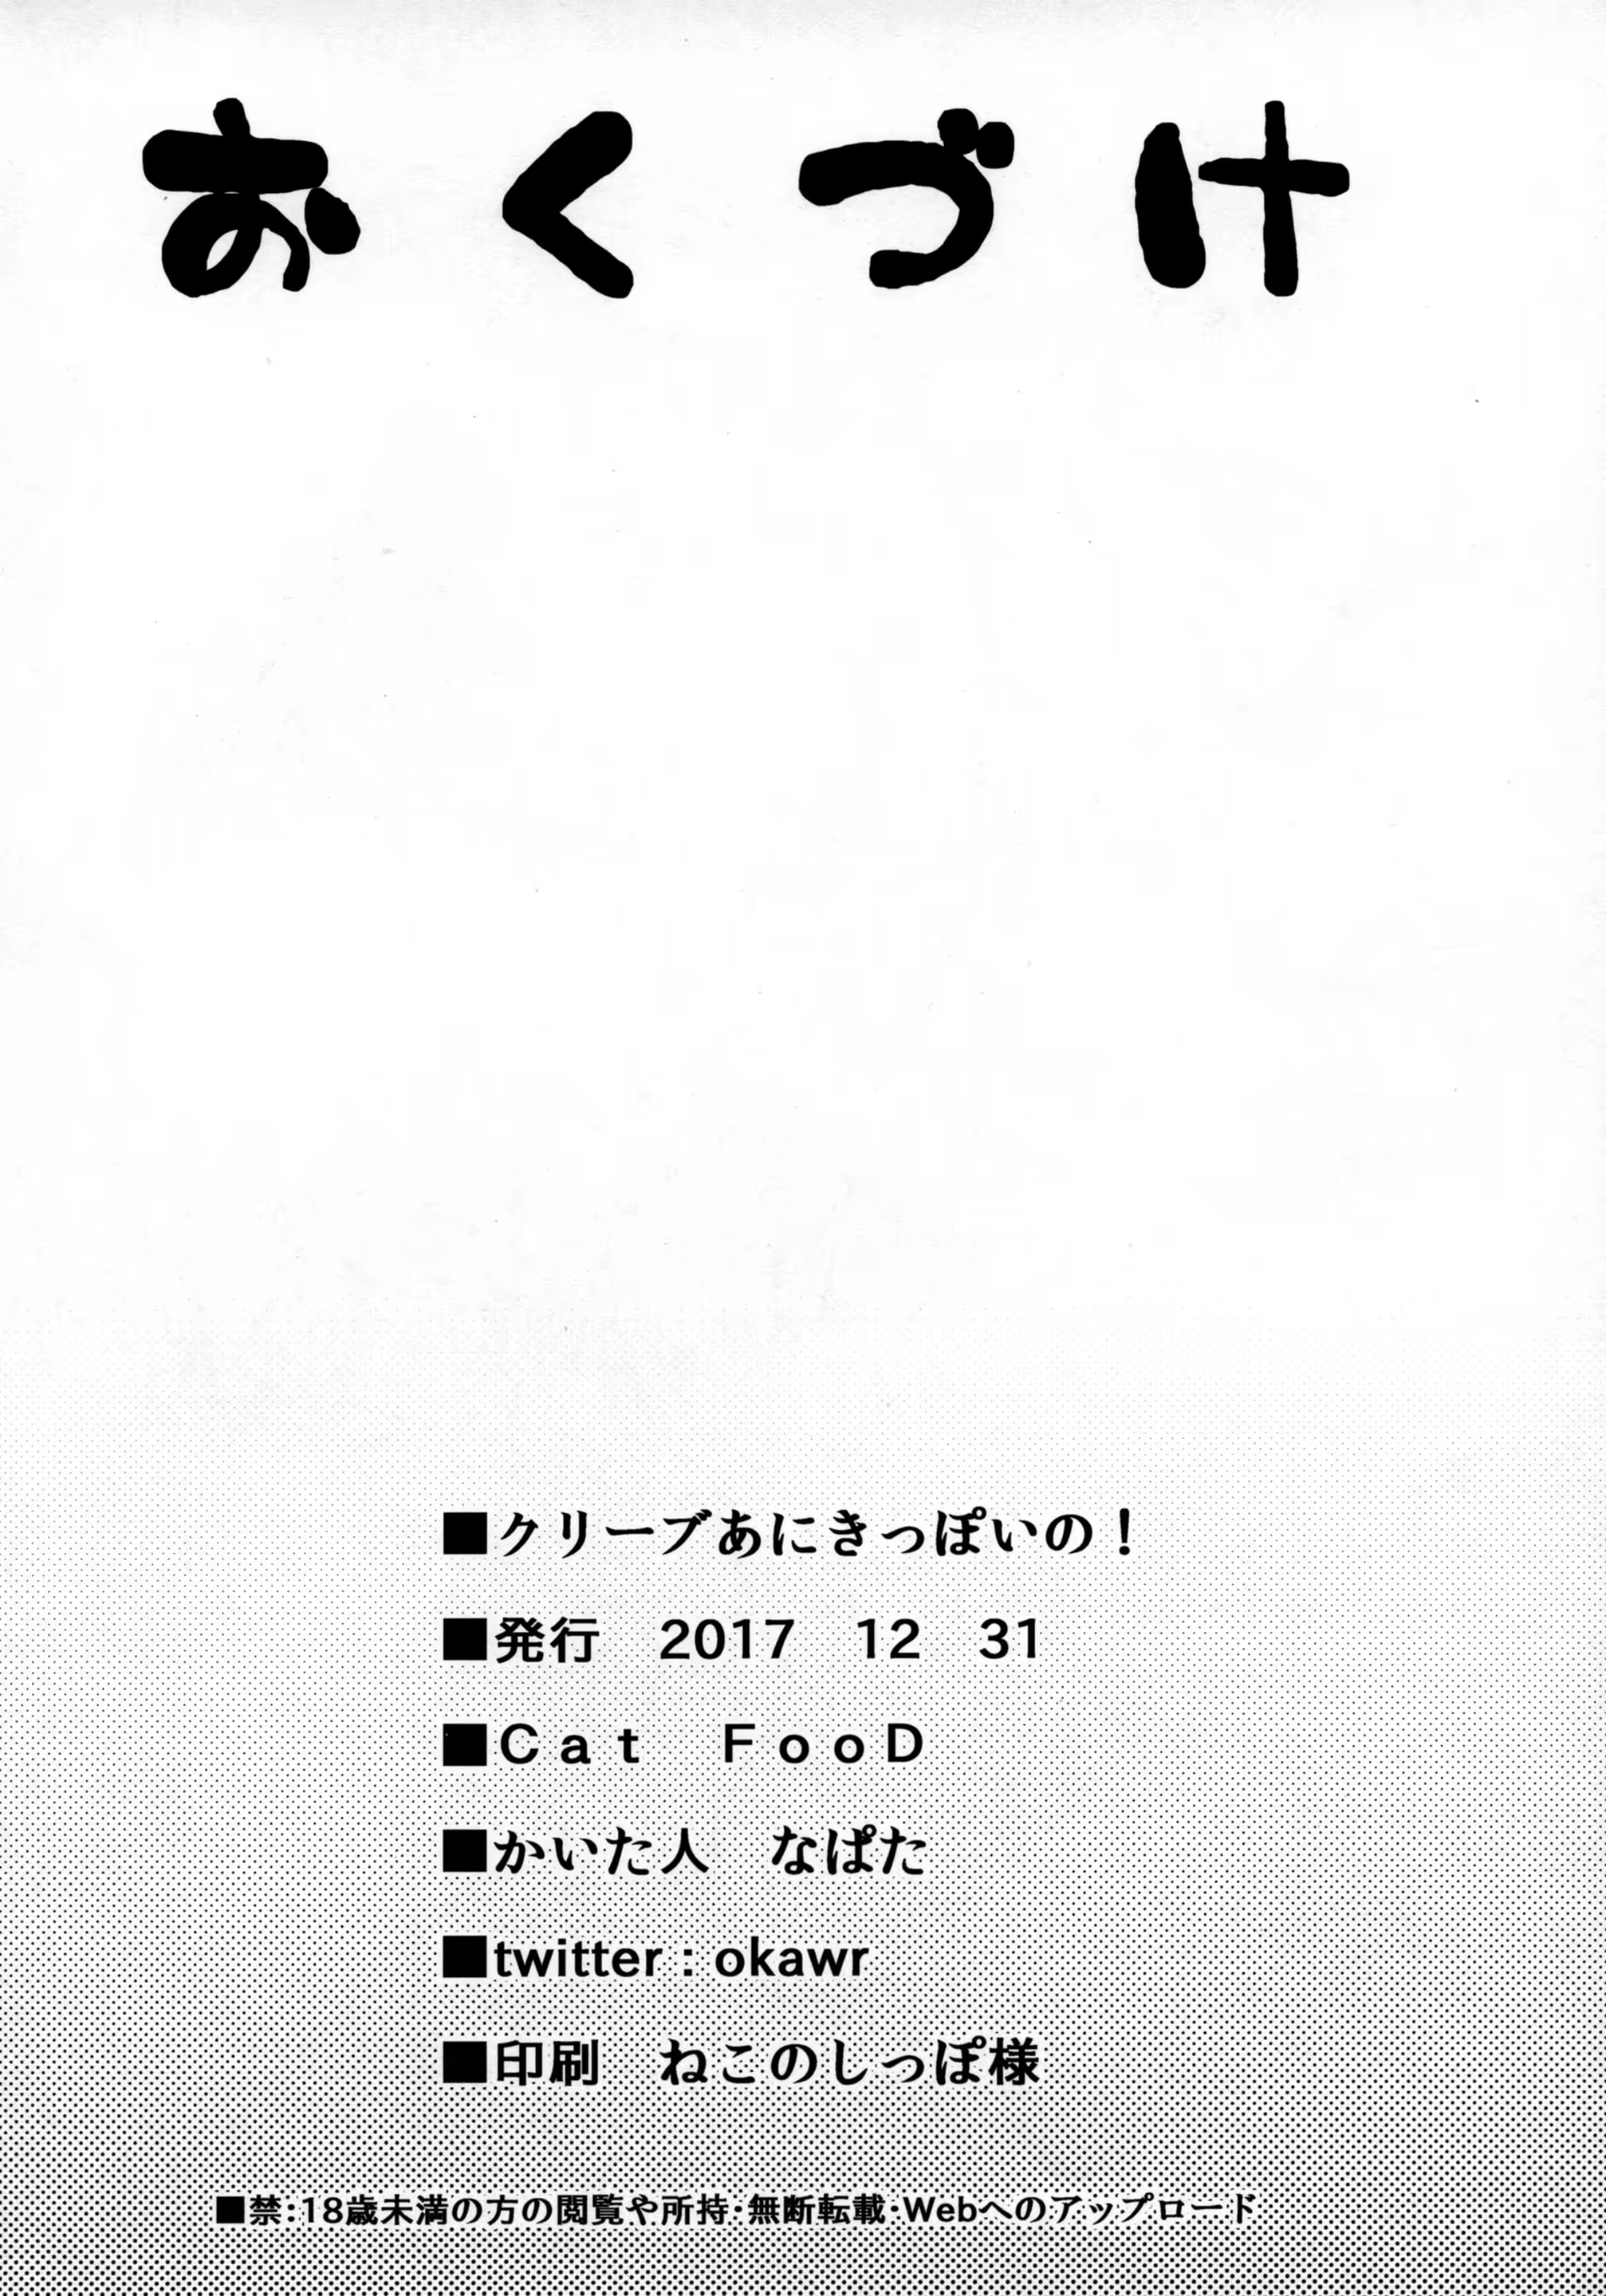 おくづけ
■クリーブあにきっぽいの！
■発行　2017　12　31
■Ｃａｔ　ＦｏｏＤ
■かいた人　なぱた
■twitter : okawr
■印刷　ねこのしっぽ様
■禁：18歳未満の方の閲覧や所持・無断転載・Webへのアップロード